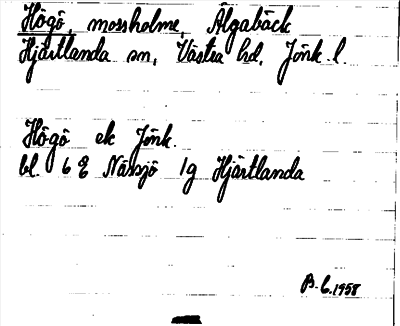 Högö, mossholme, Älgabäck
Hjärtlanda sn, Västra hd, Jönk. l.
Högö ek Jönk.
bl. 6 E Nässjö 1g Hjärtlanda
B. E. 1958